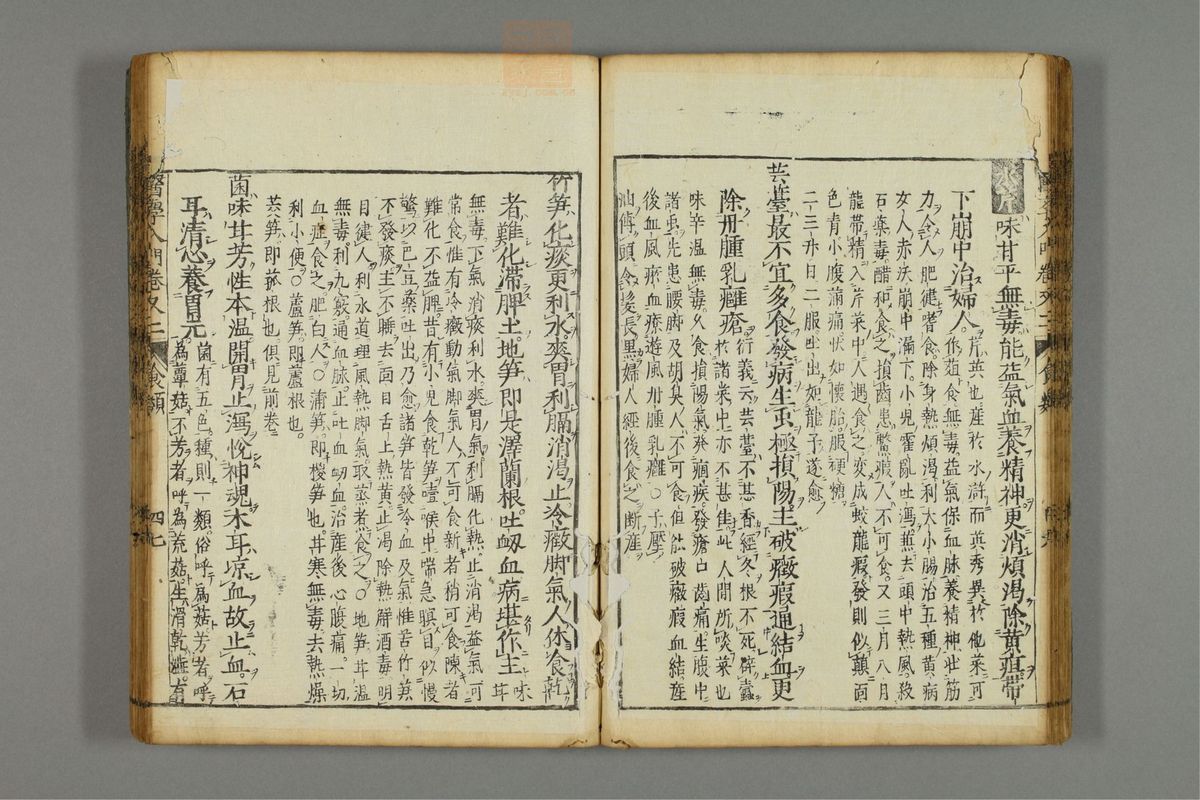 水芹味甘平無毒能益氣血養精神更消煩渴除黃疸帶
下崩中治婦人
芹英也産於水滸而英秀異於他菜可
作葅食無毒益氣保血脉養精神壯筋
力令人肥健嗜食除身熱煩渴利大小腸治五種黃病
女人赤沃崩中漏下小兒霍亂吐瀉煮去頭中熱風殺
石藥毒醋和食之損齒患鱉瘕人不可食又三月八月
龍帶精入芹菜中人遇食之變成蛟龍瘕發則似顛面
色青小腹滿痛狀如懷胎服硬糖
二三升日二服吐出如龍子遂愈
芸薹最不宜多食發病生虫極損陽主破癥瘕通結血更
除丹腫乳癰瘡
衍義云芸薹不甚香經冬根不死辟蠹
於諸菜中亦不甚佳此人間所啖菜也
味辛温無毒久食損陽氣發痼疾發瘡口齒痛生腹中
諸虫先患腰脚及胡臭人不可食但能破癥瘕血結産
後血風瘀血療遊風丹腫乳癰○子壓
油傅頭令髮長黑婦人經後食之斷産
竹笋化痰更利水爽胃利膈消渴止冷癥脚氣人休食乾
者難化滯脾土地笋即是澤蘭根吐衂血病堪作主
味甘
無毒下氣消痰利水爽胃氣利膈化熱止消渴益氣可
常食惟有冷癥動氣脚氣人不可食新者稍可食陳者
難化不益脾昔有小兒食乾笋噎喉中喘急瞑目似慢
驚以巴豆藥吐出乃愈諸笋皆發冷血及氣惟苦竹笋
不發痰主不睡去面目舌上熱黃止渴除熱解酒毒明
目健人利水道理風熱脚氣取蒸煮食之○地笋甘温
無毒利九竅通血脉止吐血衂血治産後心腹痛一切
血症食之肥白人○蒲笋即椶笋也甘寒無毒去熱燥
利小便○蘆笋即蘆根也
茭笋即菰根也俱見前卷
菌味甘芳性本温開胃止瀉悅神魂木耳凉血故止血石
耳清心養胃元
菌有五色種則一類俗呼爲菇芳者呼
爲蕈菇不芳者呼爲荒菇生滑乾難
醫學入門卷又二 食類 四七